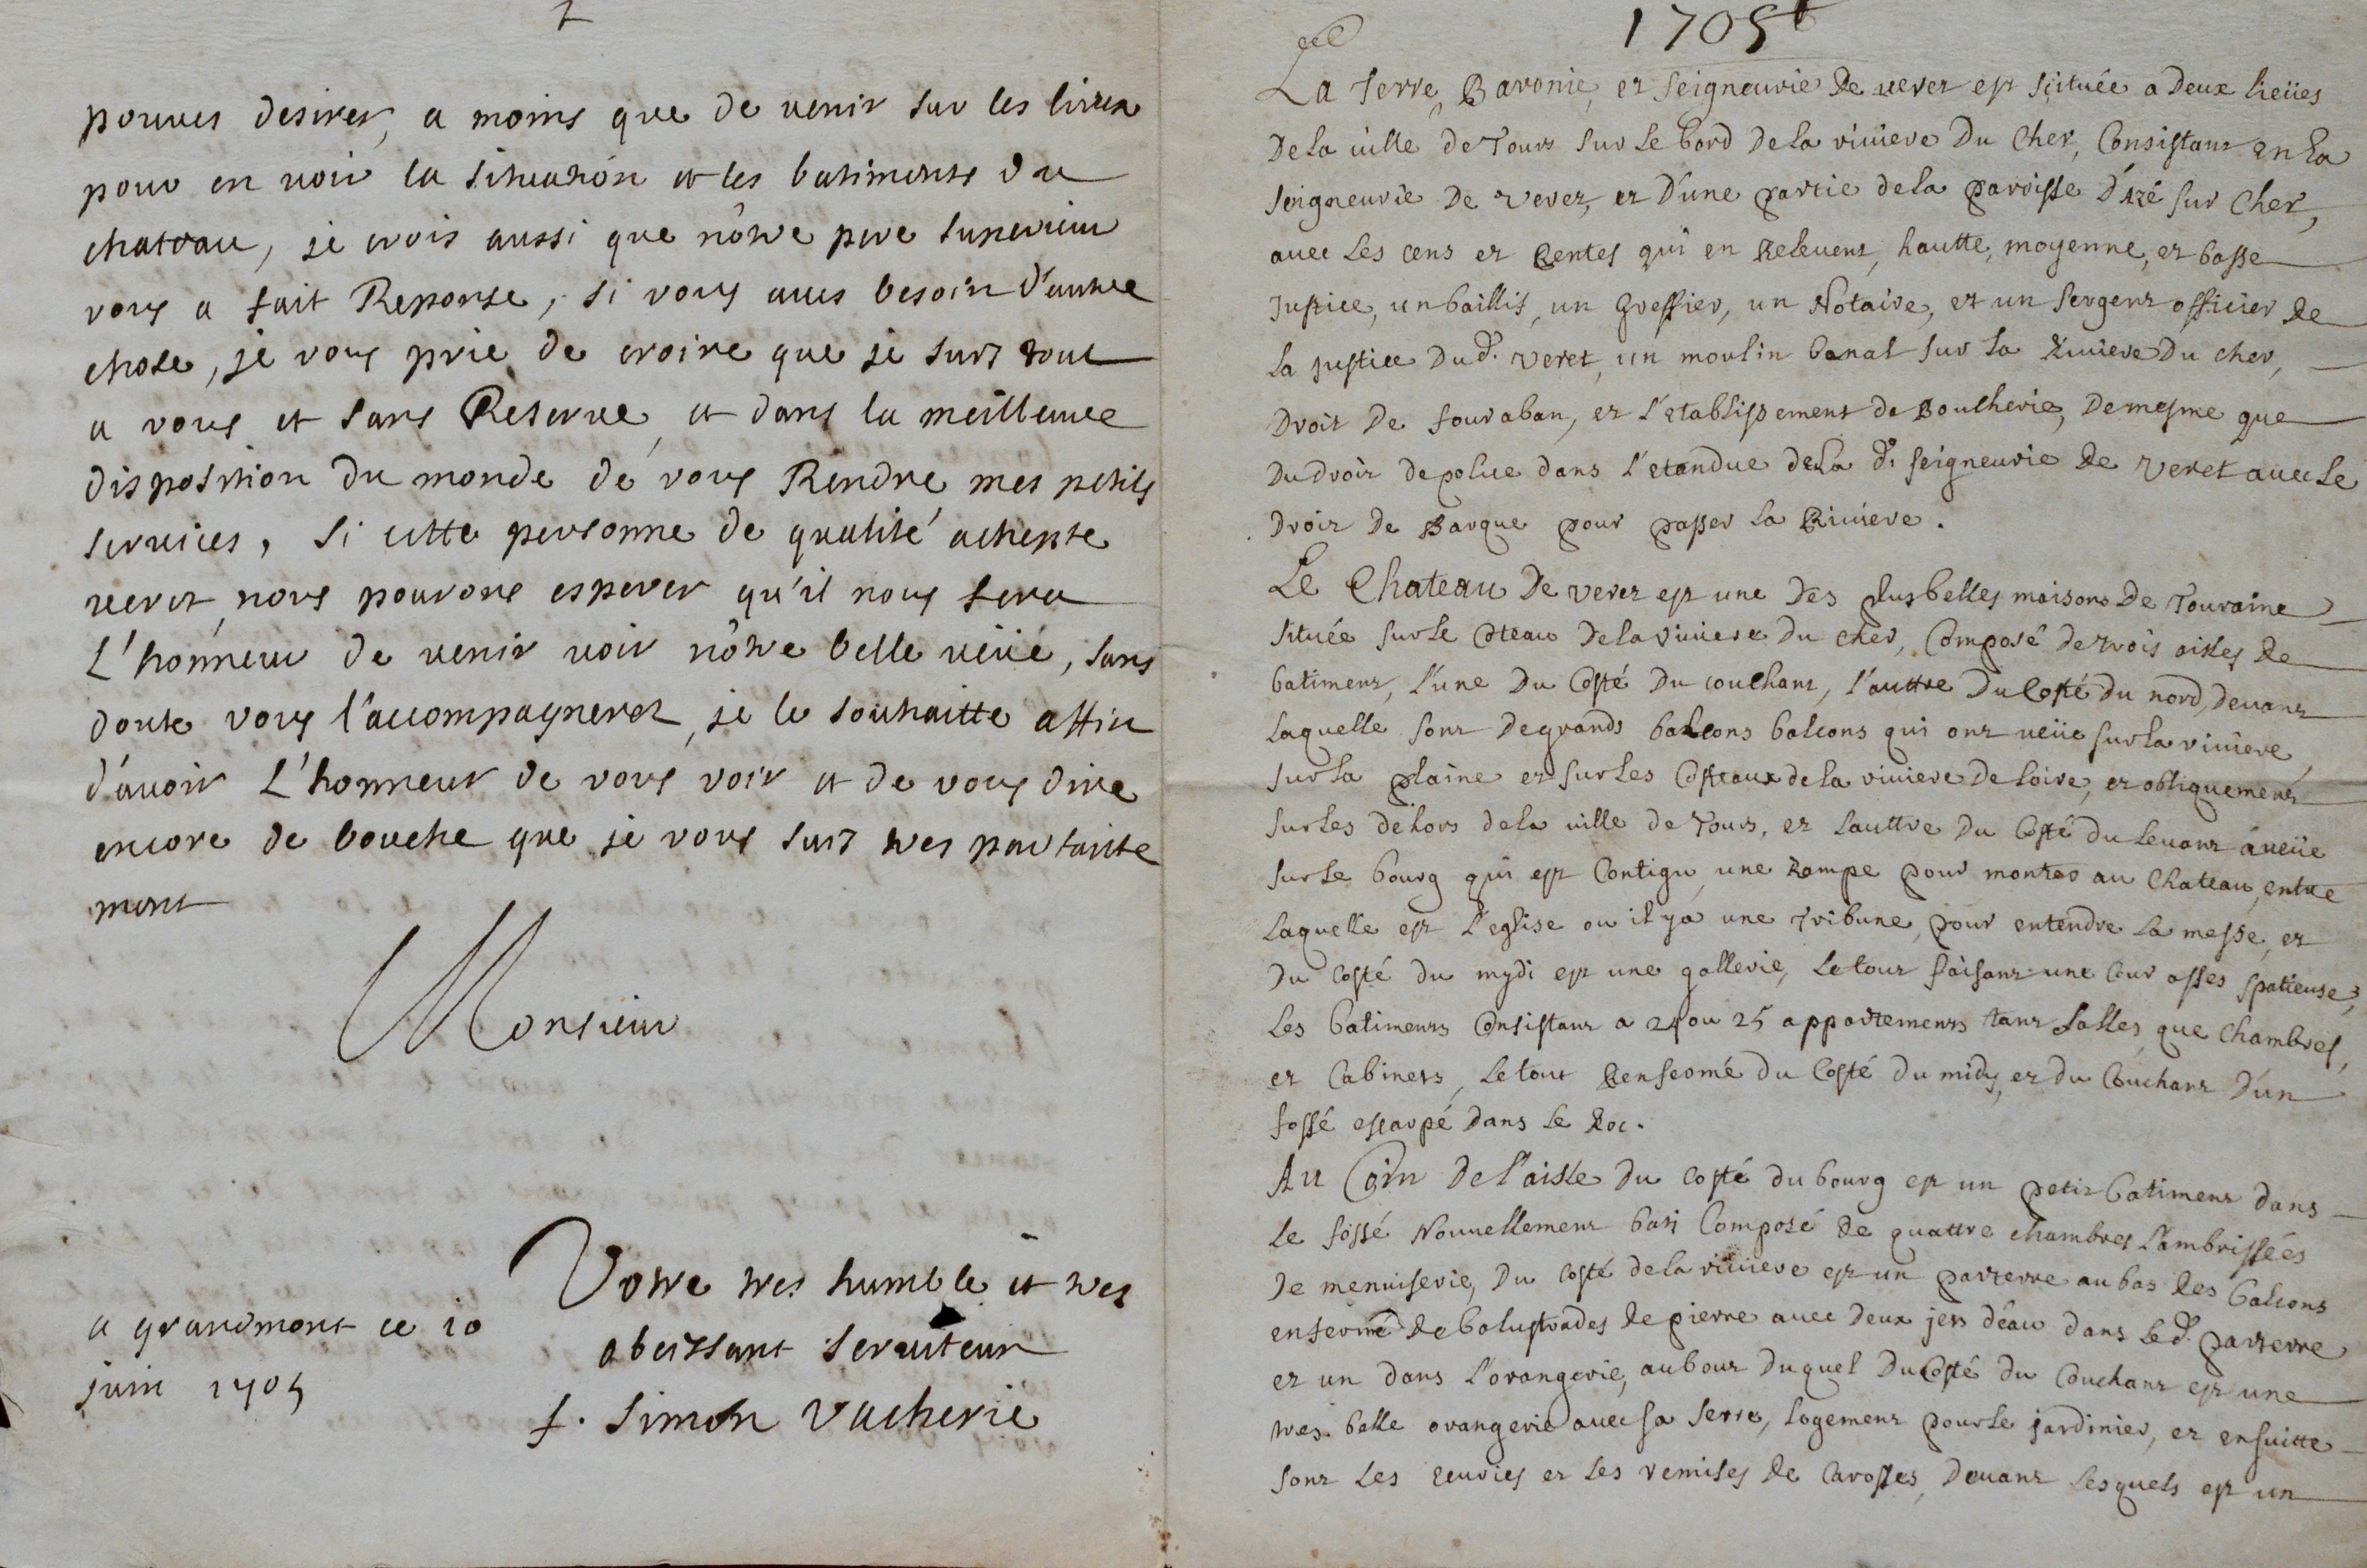 pouves desirer, a moins que de venir sur les lieux
pour en voir la situation et les batiments du
chateau, je crois aussi que nôtre pere superieur
vous a fait Reponse, si vous aves besoin d'autre
chose, je vous prie de croire que je suis tout
a vous et sans Reserve, et dans la meilleure
disposition du monde de vous Rendre mes petits
services, si cette personne de qualité achepte
veret, nous pourons esperer qu'il nous fera
L'honneur de venir voir nôtre belle veüe, sans
doute vous l'accompagneret, je le souhaitte affin
d'avoir L'honneur de vous voir et de vous dire
encore de bouche que je vous suis tres parfaite
ment
Monsieur
Votre tres humble et tres
obeissant serviteur
f. Simon Vacherie
a grandmont ce 10
juin 1705
1705
La Terre, Baronie, et seigneurie de veret est scituée a deux lieües
de la ville de Tours sur le bord de la riviere du Cher, Consistant en la
seigneurie de Veret, et d'une partie de la paroisse d'Azé sur Cher,
avec les cens et Rentes qui en Relevent, hautte, moyenne, et basse
Justice, un baillif, un Greffier, un Notaire, et un sergent officier de
la justice dud. Veret, un moulin banal sur la Riviere du cher,
droit de fouraban, et l'etablissement de Boucherie, de mesme que
du droit de police dans l'etandue de la d. seigneurie de Veret avec le
droit de Barque pour passer la Riviere.
Le Chateau de veret est une des plus belles maisons de Touraine
située sur le Coteau de la riviere du cher, Composé de trois aisles de
batiment, l'une du Costé du couchant, l'auttre du Costé du nord, devant
laquelle sont de grands balcons balcons qui ont veüe sur la riviere
sur la plaine et sur les Costeaux de la riviere de Loire, et obliquement
sur les dehors de la ville de Tours, et lauttre du Costé du levant a veüe
sur le bourg qui est Contigu, une Rampe pour monter au Chateau, entre
laquelle est l'eglise ou il y a une Tribune, pour entendre la messe, et
du costé du mydi est une gallerie, le tout faisant une Cour asses spatieuse,
les batiments Consistant a 24 ou 25 appartements tant Salles, que Chambres,
et Cabinets, le tout Renfermé du Costé du midy, et du Couchant d'un
fossé escarpé dans le Roc.
Au Coin de l'aisle du costé du bourg est un petit batiment dans
le fossé Nouvellement bati Composé de quattre chambres lambrissées
de menuiserie, du costé de la riviere est un parterre au bas des balcons
enfermé de balustrades de pierre avec deux jets d'eau dans led. parterre
et un dans l'orangerie, au bout duquel du Costé du Couchant est une
tres belle orangerie avec sa serre, logement pour le jardinier, et ensuitte
sont les ecuries et les remises de Carosses, devant lesquels est un